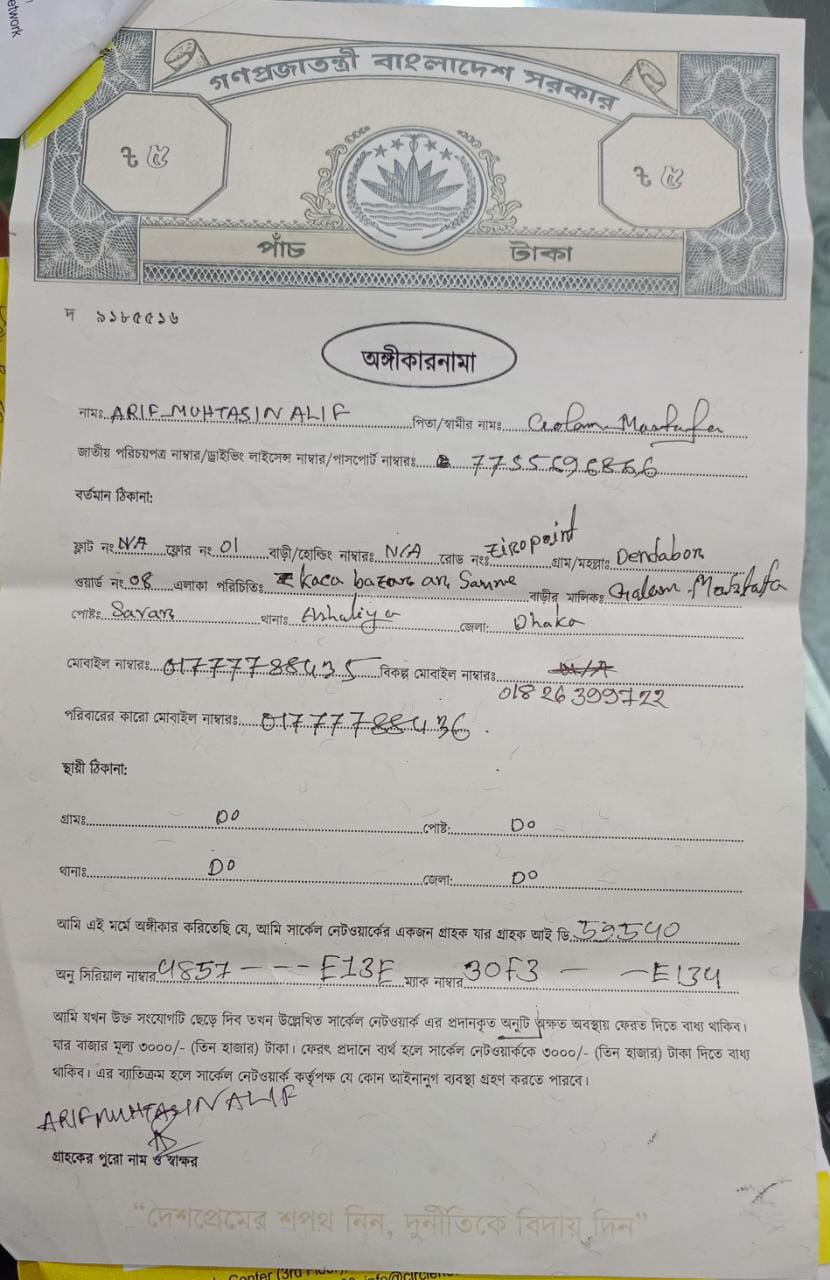 etwork
গণপ্রজাতন্ত্রী বাংলাদেশ সরকার
৳ ৫
৳ ৫
পাঁচ টাকা
দ ৯১৮৫৫১৬
অঙ্গীকারনামা
নামঃ ARIF MUHTASIN ALIF পিতা/স্বামীর নামঃ Golam Mostafa
জাতীয় পরিচয়পত্র নাম্বার/ড্রাইভিং লাইসেন্স নাম্বার/পাসপোর্ট নাম্বারঃ 7755696866
বর্তমান ঠিকানা:
ফ্লাট নং N/A ফ্লোর নং 01 বাড়ী/হোল্ডিং নাম্বারঃ N/A রোড নংঃ Ziropoint গ্রাম/মহল্লাঃ Dendabor
ওয়ার্ড নং 08 এলাকা পরিচিতিঃ kaca bazar বাড়ীর মালিকঃ Golam Mostafa
পোষ্টঃ Savar থানাঃ Ashuliya জেলা: Dhaka
মোবাইল নাম্বারঃ 01777788435 বিকল্প মোবাইল নাম্বারঃ
01826399722
পরিবারের কারো মোবাইল নাম্বারঃ 01777788436
স্থায়ী ঠিকানা:
গ্রামঃ Do পোষ্ট: Do
থানাঃ Do জেলা: Do
আমি এই মর্মে অঙ্গীকার করিতেছি যে, আমি সার্কেল নেটওয়ার্কের একজন গ্রাহক যার গ্রাহক আই ডি 59540
অনু সিরিয়াল নাম্বার 4857 --- E13E ম্যাক নাম্বার 30F3 - - E134
আমি যখন উক্ত সংযোগটি ছেড়ে দিব তখন উল্লেখিত সার্কেল নেটওয়ার্ক এর প্রদানকৃত অনুটি অক্ষত অবস্থায় ফেরত দিতে বাধ্য থাকিব।
যার বাজার মূল্য ৩০০০/- (তিন হাজার) টাকা। ফেরৎ প্রদানে ব্যর্থ হলে সার্কেল নেটওয়ার্ককে ৩০০০/- (তিন হাজার) টাকা দিতে বাধ্য
থাকিব। এর ব্যতিক্রম হলে সার্কেল নেটওয়ার্ক কর্তৃপক্ষ যে কোন আইনানুগ ব্যবস্থা গ্রহণ করতে পারবে।
ARIF MUHTASIN ALIF
গ্রাহকের পুরো নাম ও স্বাক্ষর
“দেশপ্রেমের শপথ নিন, দুর্নীতিকে বিদায় দিন”